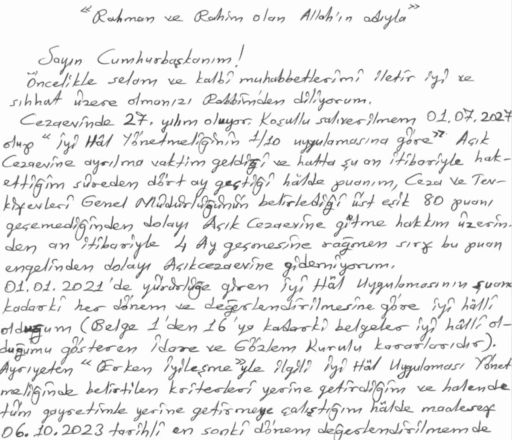 "Rahman ve Rahim olan Allah'ın adıyla"
Sayın Cumhurbaşkanım!
Öncelikle selam ve kalbî muhabbetlerimi iletir iyi ve
sıhhat üzere olmanızı Rabbim'den diliyorum.
Cezaevinde 27. yılım oluyor. Koşullu salıverilmem 01.07.2027
olup "İyi Hâl Yönetmeliğinin 1/10 uygulamasına göre" Açık
Cezaevine ayrılma vaktim geldiği ve hatta şu an itibariyle hak-
ettiğim süreden dört ay geçtiği hâlde puanım, Ceza ve Tev-
kifevleri Genel Müdürlüğünün belirlediği üst eşik 80 puanı
geçemediğinden dolayı Açık Cezaevine gitme hakkım üzerin-
den an itibariyle 4 Ay geçmesine rağmen sırf bu puan
engelinden dolayı Açıkcezaevine gidemiyorum.
01.01.2021'de yürürlüğe giren İyi Hâl Uygulamasının şuana
kadarki her dönem ve değerlendirilmesine göre iyi hâlli
olduğum (Belge 1'den 16'ya kadarki belgeler iyi hâlli ol-
duğumu gösteren İdare ve Gözlem Kurulu kararlarıdır).
Ayrıyeten "Erken iyileşme"yle ilgili İyi Hâl Uygulaması Yönet
meliğinde belirtilen kriterleri yerine getirdiğim ve halende
tüm gayretimle yerine getirmeye çalıştığım hâlde maalesef
06.10.2023 tarihli en sonki dönem değerlendirilmemde